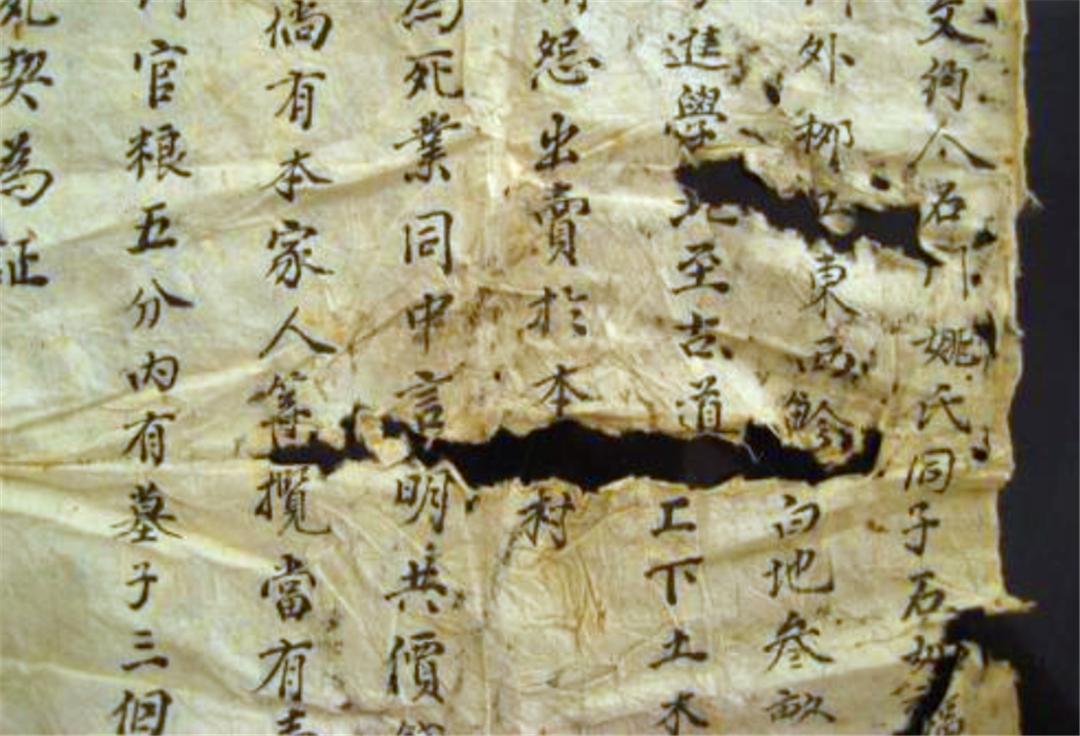 文約人石門姚氏同子石如
外柳東西畛白地叁畝
進學北至古道工下土木
怨出賣於本村
為死業同中言明共價
倘有本家人等攬當有
官粮五分內有墓子三個
死契為証